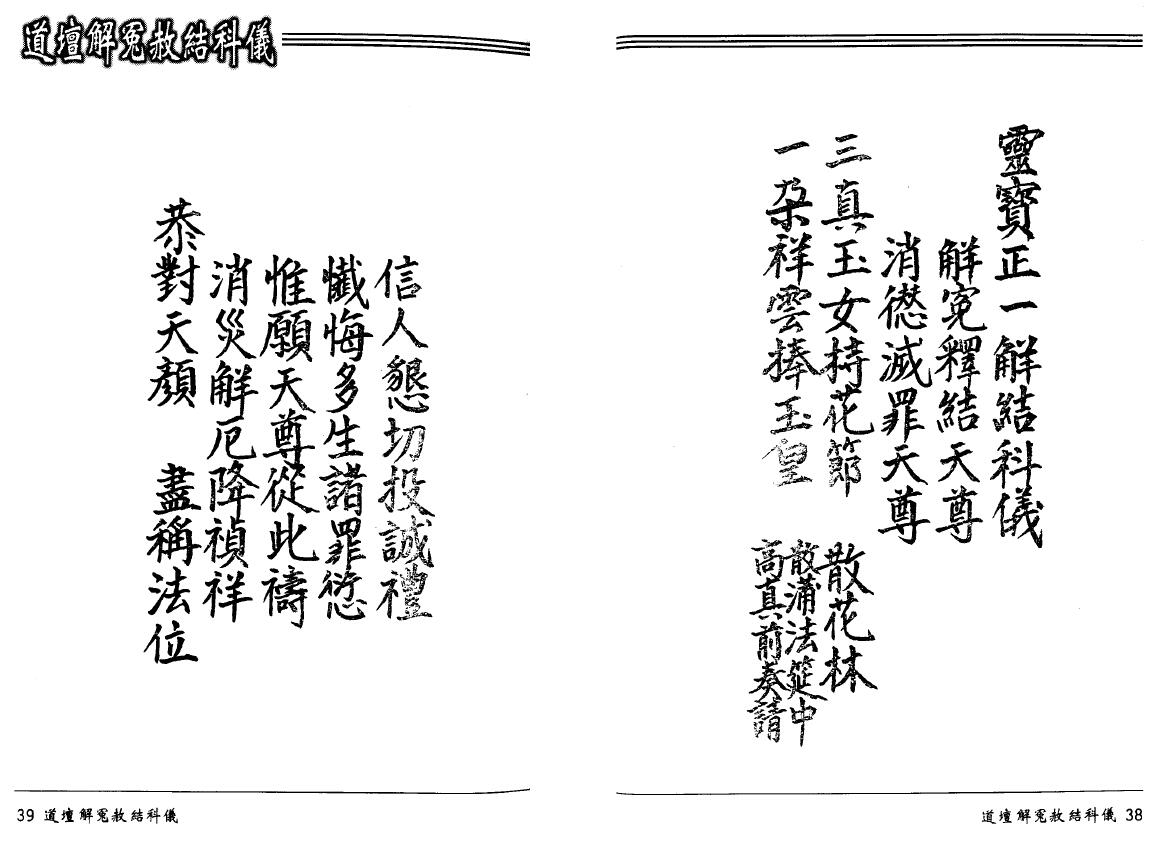 靈寶正一觧結科儀
觧寃釋結天尊
消愆滅罪天尊
三真玉女持花節 散花林
一朶祥雲捧玉皇 散滿法筵中
高真前奏請
道壇解冤赦結科儀 38
道壇解冤赦結科儀
信人懇切投誠禮
懺悔多生諸罪愆
惟願天尊從此禱
消災觧厄降禎祥
恭對天顏 盡稱法位
39 道壇解冤赦結科儀